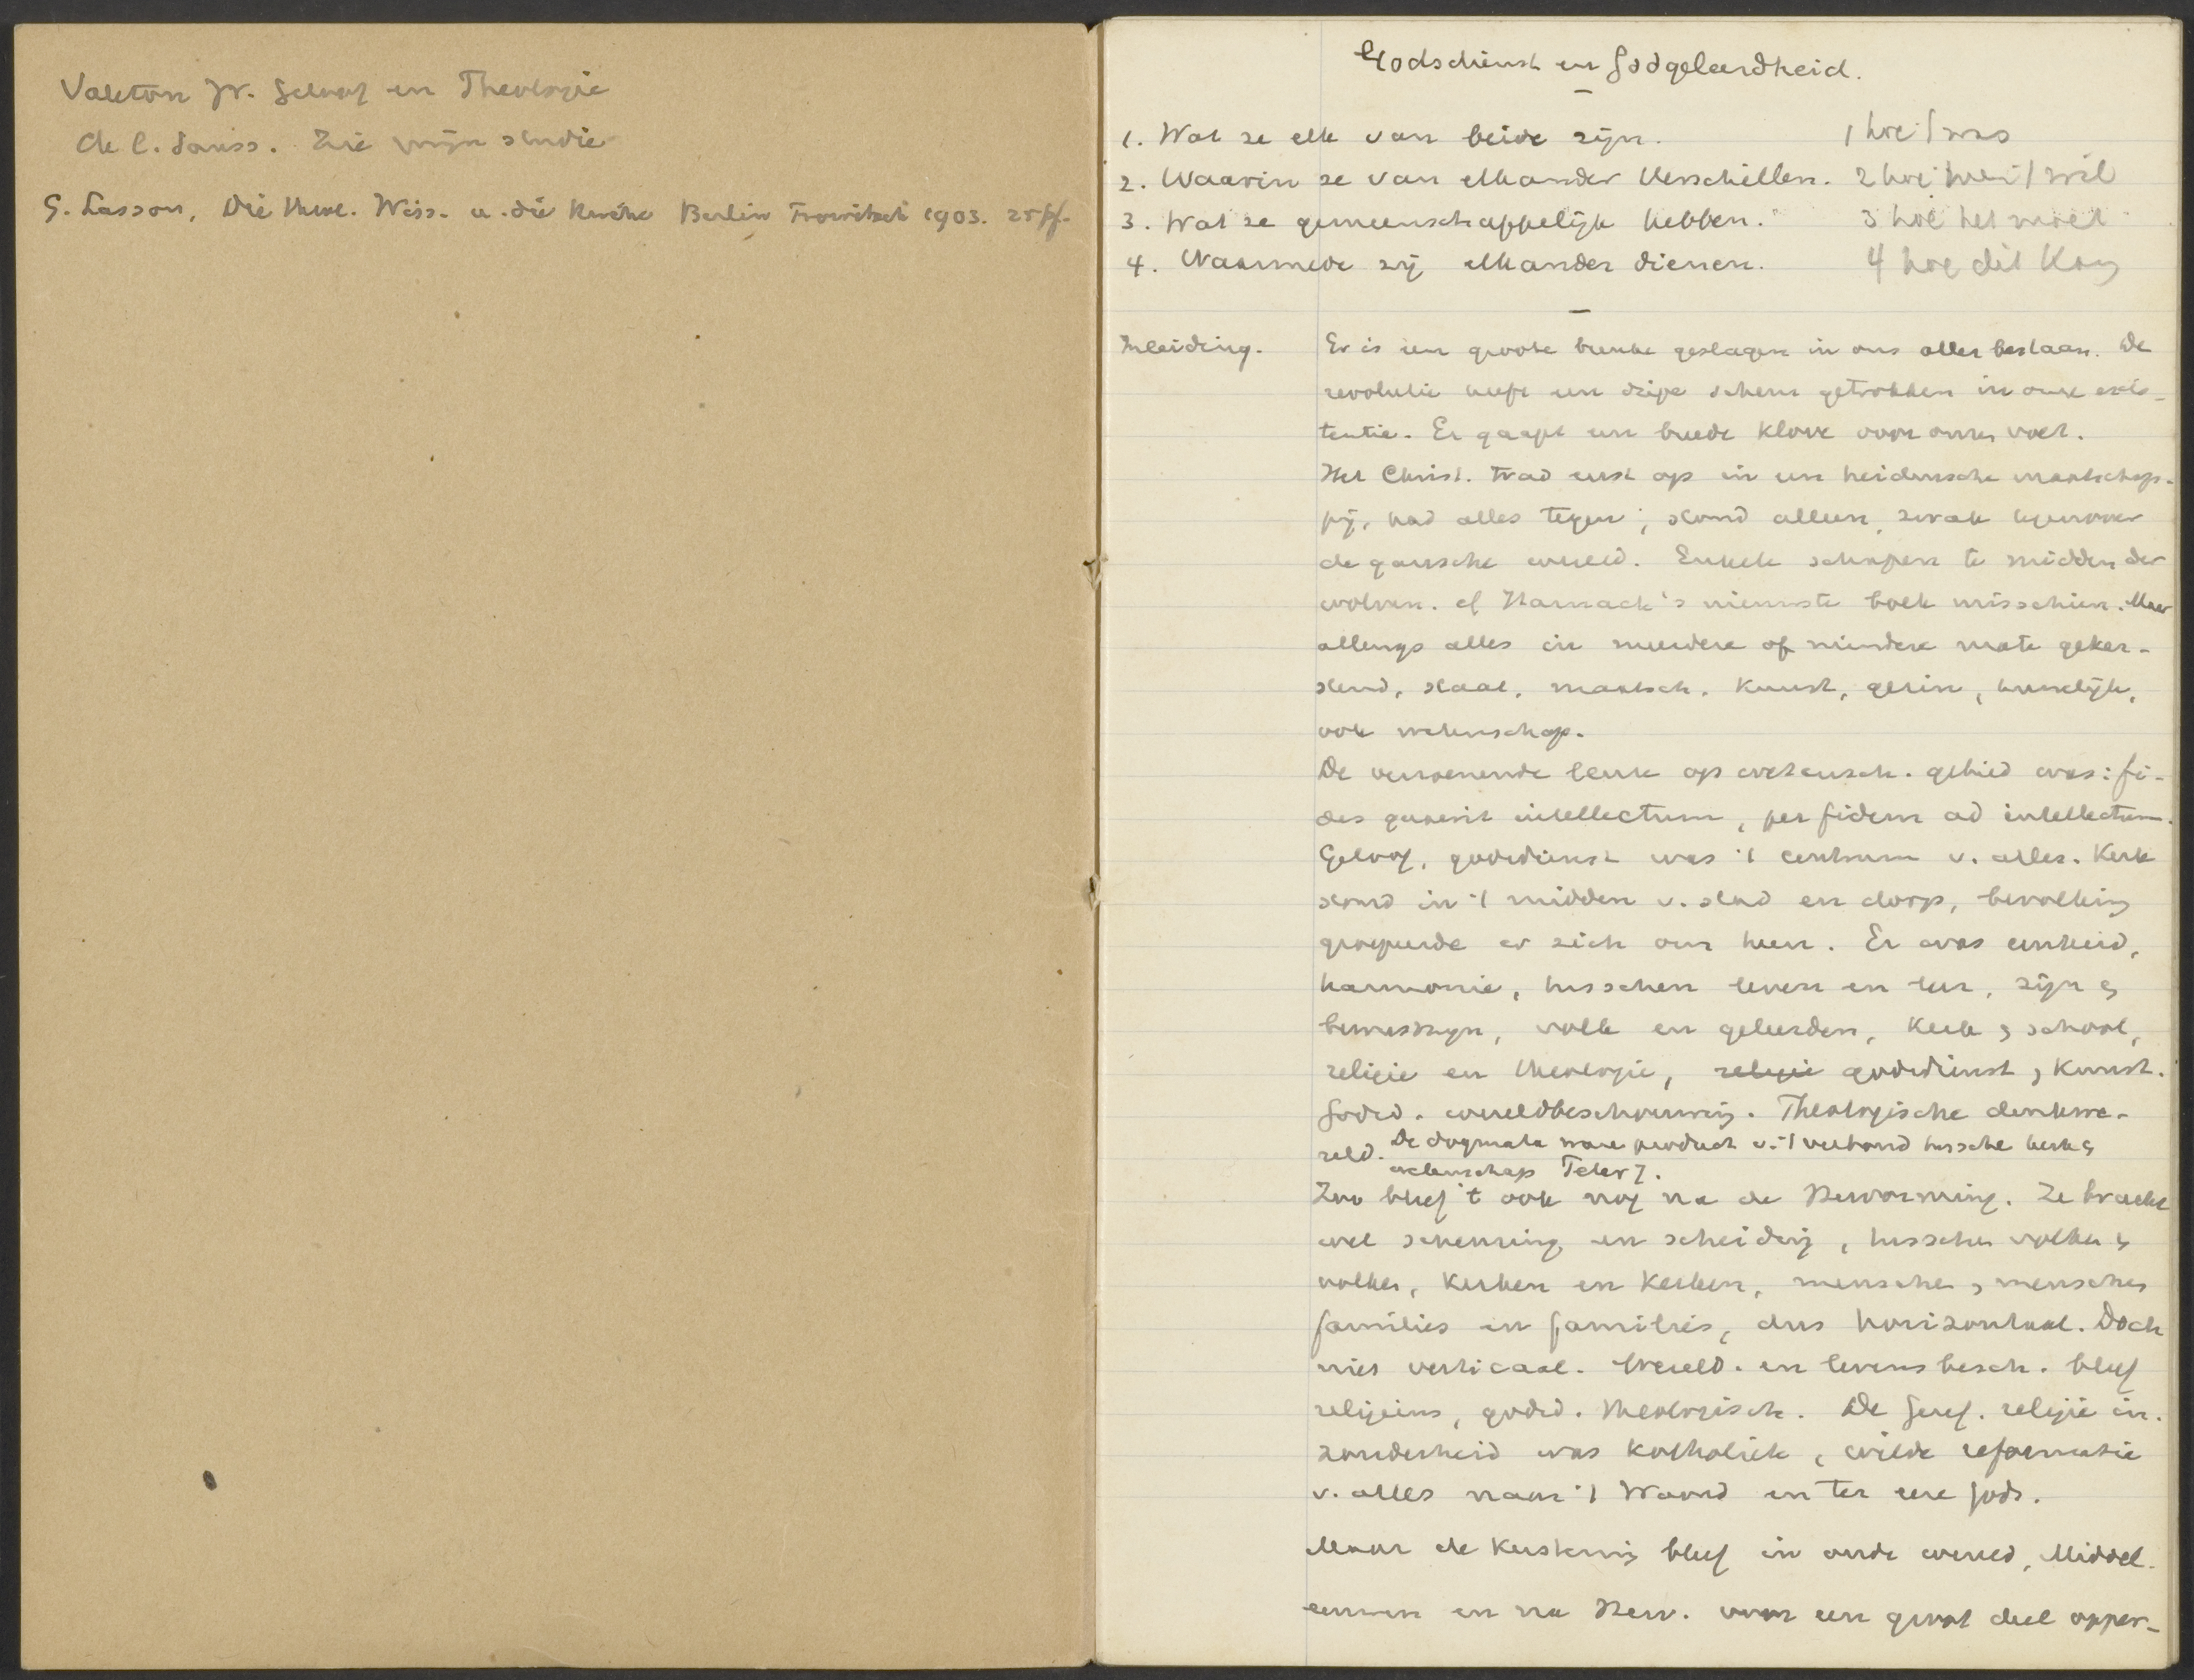 Valeton Jr. Geloof en Theologie
Ch. d. l. Sauss. Zie mijn studie
G. Lasson, Die theol. Wiss. u. die Kirche Berlin Trowitzsch 1903. 25 pf.
Godsdienst en Godgeleerdheid.
1. Wat ze elk van beide zijn. 1 hoe 't was
2. Waarin ze van elkander verschillen. 2 hoe men 't wil
3. Wat ze gemeenschappelijk hebben. 3 hoe het moet
4. Waarmede zij elkander dienen. 4 hoe dit kan
Inleiding. Er is een groote breuke geslagen in ons aller bestaan. De
revolutie heeft een diepe scheur getrokken in onze exis-
tentie. Er gaapt een breede klove voor onzen voet.
Het Christ. trad eerst op in een heidensche maatschap-
pij, had alles tegen; stond alleen, zwak tegenover
de gansche wereld. Enkele schapen te midden der
wolven. cf Harnack's nieuwste boek misschien. Maar
allengs alles in meerdere of mindere mate geker-
stend, staat, maatsch. kunst, gezin, huwelijk,
ook wetenschap.
De verzoenende leuze op wetensch. gebied was: fi-
des quaerit intellectum, per fidem ad intellectum.
Geloof, godsdienst was 't centrum v. alles. Kerk
stond in 't midden v. stad en dorp, bevolking
groepeerde er zich om heen. Er was eenheid,
harmonie, tusschen leven en leer, zijn en
bewustzijn, volk en geleerden, kerk en school,
religie en theologie, religie godsdienst en kunst.
Godsd. wereldbeschouwing. Theologische denkwe-
reld. De dogmata ware product v. 't verband tussche kerk en
wetenschap
Zoo bleef 't ook nog na de Hervorming. Ze bracht
wel scheuring en scheiding, tusschen volken en
volken, kerken en kerken, menschen en menschen
families en families, dus horizontaal. Doch
niet verticaal. Wereld- en levensbesch. bleef
religieus, godsd. theologisch. De Geref. religie in-
zonderheid was katholiek, wilde reformatie
v. alles naar 't Woord en ter eere Gods.
Maar de kerstening bleef in oude wereld, Middel-
eeuwen en na Herv. voor een groot deel opper-